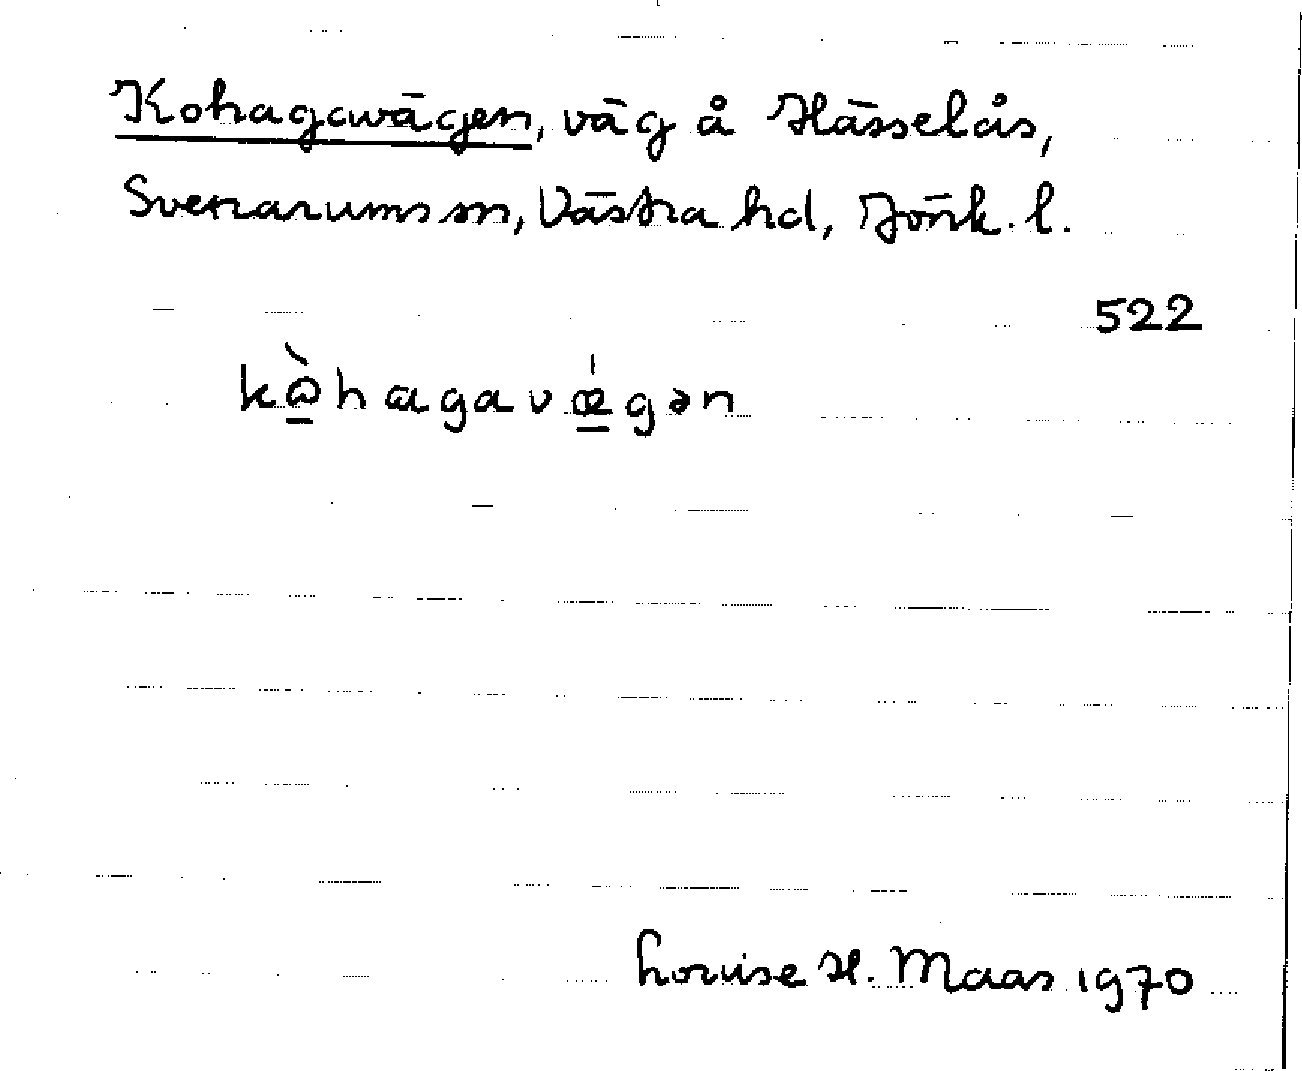 Kohagavägen, väg å Hässelås,
Svenarums sn, Västra hd, Jönk. l.
522
kὼhagavǽgən
Louise H. Maas 1970